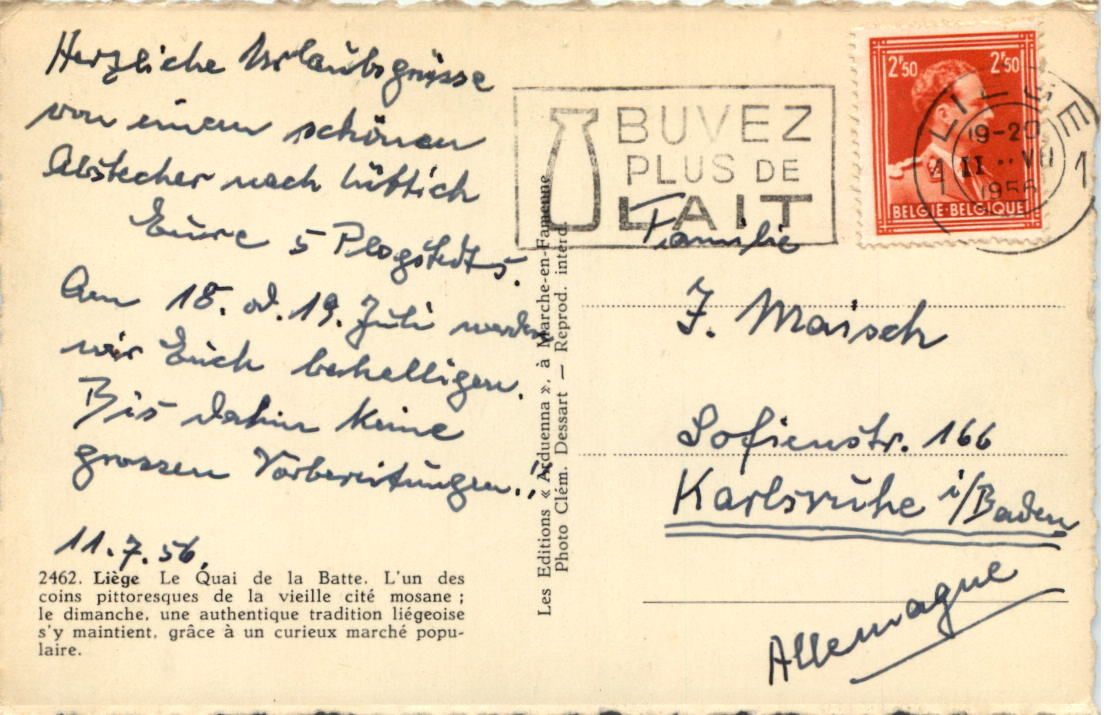 Herzliche Urlaubsgrüsse
von einem schönen
Abstecher nach Lüttich
Eure 5 Plogstedts.
Am 18. od. 19. Juli werden
wir Euch behelligen.
Bis dahin keine
grossen Vorbereitungen!!
11.7.56.
2462. Liège Le Quai de la Batte. L'un des
coins pittoresques de la vieille cité mosane ;
le dimanche, une authentique tradition liégeoise
s'y maintient, grâce à un curieux marché popu-
laire.
Les Editions « Arduenna », à Marche-en-Famenne
Photo Clém. Dessart — Reprod. interd.
BUVEZ
PLUS DE
LAIT
2f50 2f50
BELGIE-BELGIQUE
LIEGE
1 1
19-20
11 .. VII
1956
Familie
J. Maisch
Sofienstr. 166
Karlsruhe i/Baden
Allemagne